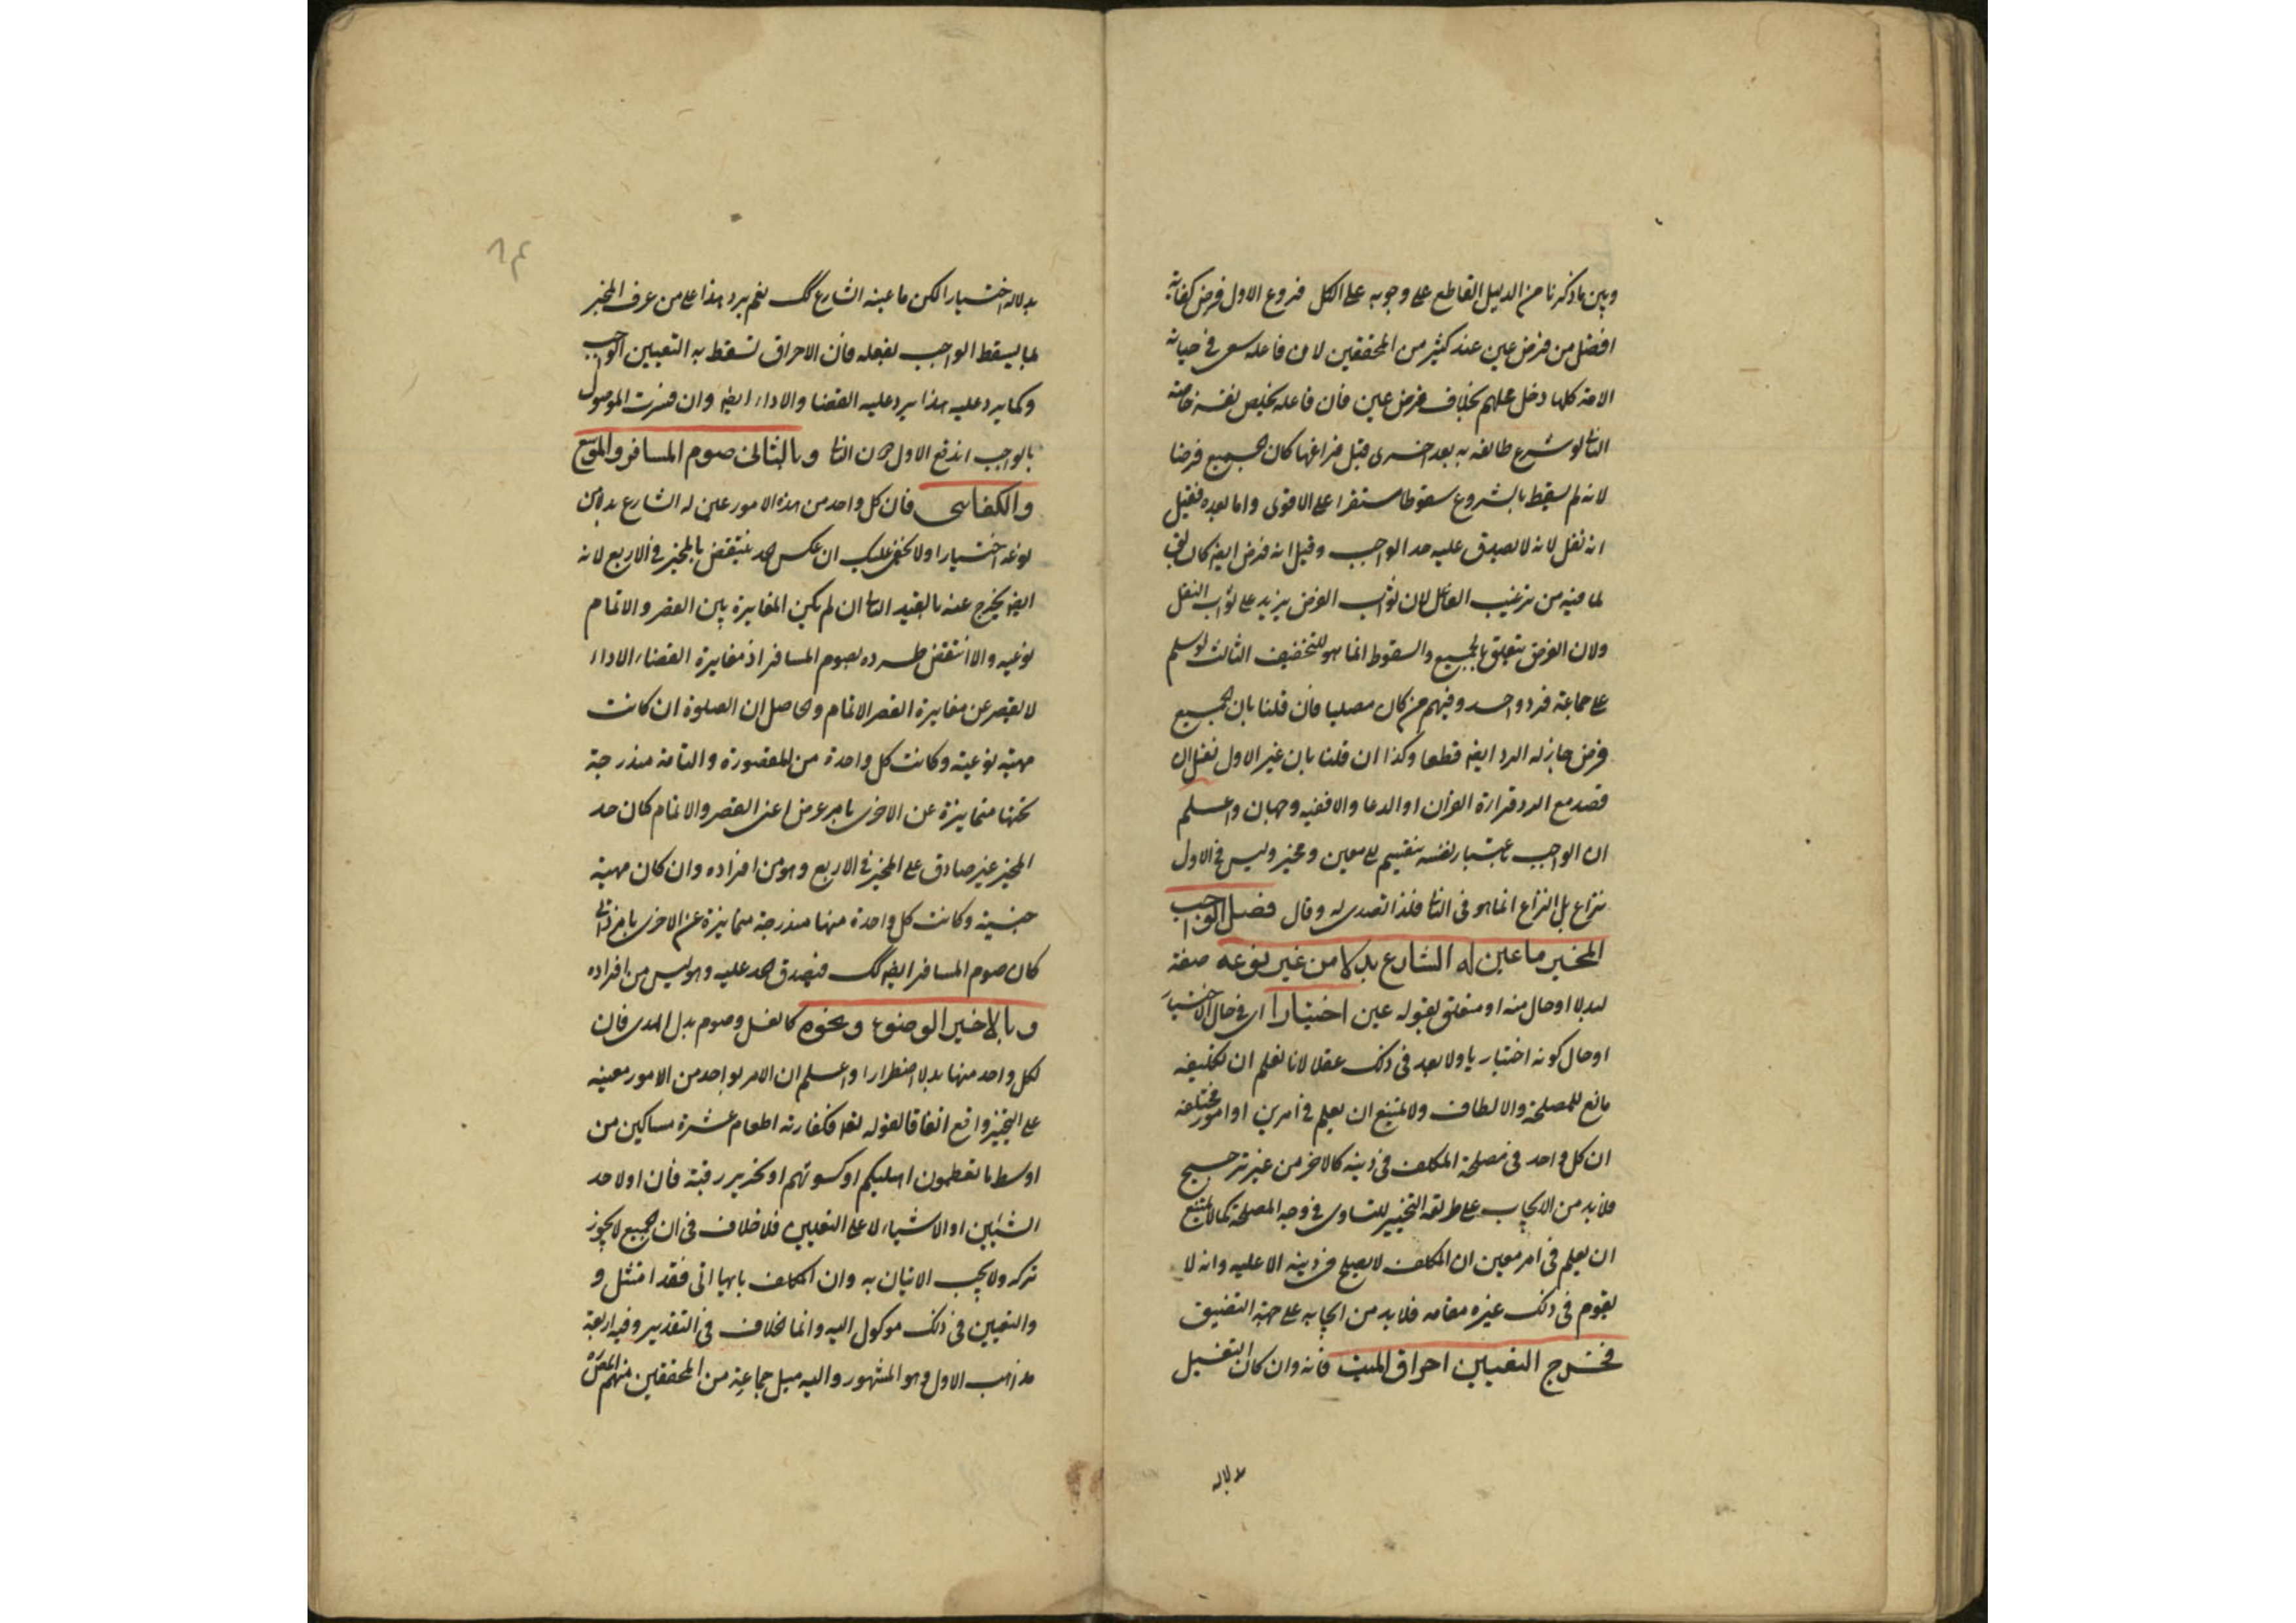 وبين ما ذكرنا من الدليل القاطع على وجوبه على الكل فروع الاول فرض كفاية
افضل من فرض عين عند كثير من المحققين لان فاعله سعى في صيانة
الامة كلها دخل عليهم بخلاف فرض عين فان فاعله يخلص نفسه خاصة
الثانى لو شرع طائفة به بعد اخرى قبل فراغها كان الجميع فرضا
لانه لم يسقط بالشروع سقوطا مستقرا على الاقوى واما بعده فقيل
انه نفل لانه لا يصدق عليه حد الواجب وقيل انه فرض ايضا كان
لما فيه من ترغيب الفاعل لان ثواب الفرض يزيد على ثواب النفل
ولان الفرض يتعلق بالجميع والسقوط انما هو للتخفيف الثالث لو سلم
على جماعة فرد واحد وفيهم من كان مصليا فان قلنا بان الجميع
فرض جاز له الرد ايضا قطعا وكذا ان قلنا بان غير الاول نفل ان
قصد مع الرد قراءة القران او الدعا والا ففيه وجهان واعلم
ان الواجب باعتبار نفسه ينقسم الى معين ومخير وليس في الاول
نزاع بل النزاع انما هو في الثانى فلذا تصدى له وقال فصل الواجب
المخير ما عين له الشارع بدلا من غير نوعه صفة
لبدلا او حال منه او متعلق بقوله عين اختيارا اى في حال الاختيار
او حال كونه اختياريا ولا بعد في ذلك عقلا لانا نعلم ان تكليفه
تابع للمصلحة والالطاف ولا يمتنع ان يعلم في امرين او امور مختلفة
ان كل واحد في مصلحة المكلف في دينه كالاخر من غير ترجيح
فلا بد من الايجاب على طريقة التخيير للتساوى في وجه المصلحة كما لا يمتنع
ان يعلم في امر معين ان المكلف لا يصلح في دينه الا عليه وانه لا
يقوم في ذلك غيره مقامه فلا بد من ايجابه على جهة التضييق
فخرج التعيين احراق الميت فانه وان كان التغسيل
دلاله
بدلاله اختيارا لكن ما عينه الشارع كك نعم يرد هذا على من عرف المخير
بما يسقط الواجب بفعله فان الاحراق تسقط به التعيين الواجب
وكما يرد عليه هذا يرد عليه القضا والاداء ايضا وان فسرت الموصول
بالواجب اندفع الاول دون الثانى وبالثانى صوم المسافر والموسع
والكفائى فان كل واحد من هذه الامور عين له الشارع بدلا من
نوعه اختيارا ولا يخفى عليك ان عكس الحد ينتقض بالمخير في الاربع لانه
ايضا يخرج عنه بالقيد الثانى ان لم يكن المغايرة بين القصر والاتمام
نوعيه والا انتقض طرده بصوم المسافر اذ مغايرة القضاء الاداء
لا يقصر عن مغايرة القصر الاتمام والحاصل ان الصلوة ان كانت
مهية نوعية وكانت كل واحدة من المقصورة والتامة مندرجة
تحتها متمايزة عن الاخرى بامر عرض اعنى القصر والاتمام كان حد
المخير غير صادق على المخير في الاربع وهو من افراده وان كان مهية
جنسية وكانت كل واحدة منها مندرجة متمايزة عن الاخرى بامر ذاتى
كان صوم المسافر ايضا كك فيصدق الحد عليه وهو ليس من افراده
وبالاخير الوضوء ونحوه كالغسل وصوم بدل الهدى فان
لكل واحد منها بدلا اضطرارا واعلم ان الامر بواحد من الامور معينه
على التخيير واقع اتفاقا لقوله تعا فكفارته اطعام عشرة مساكين من
اوسط ما تطعمون اهليكم او كسوتهم او تحرير رقبة فان اولا حد
الشيئين او الاشياء لا على التعيين فلا خلاف في ان الجميع لا يجوز
تركه ولا يجب الاتيان به وان المكلف بايها اتى فقد امتثل و
والتعيين في ذلك موكول اليه وانما الخلاف في التقدير وفيه اربعة
مذاهب الاول وهو المشهور واليه ميل جماعة من المحققين منهم المص